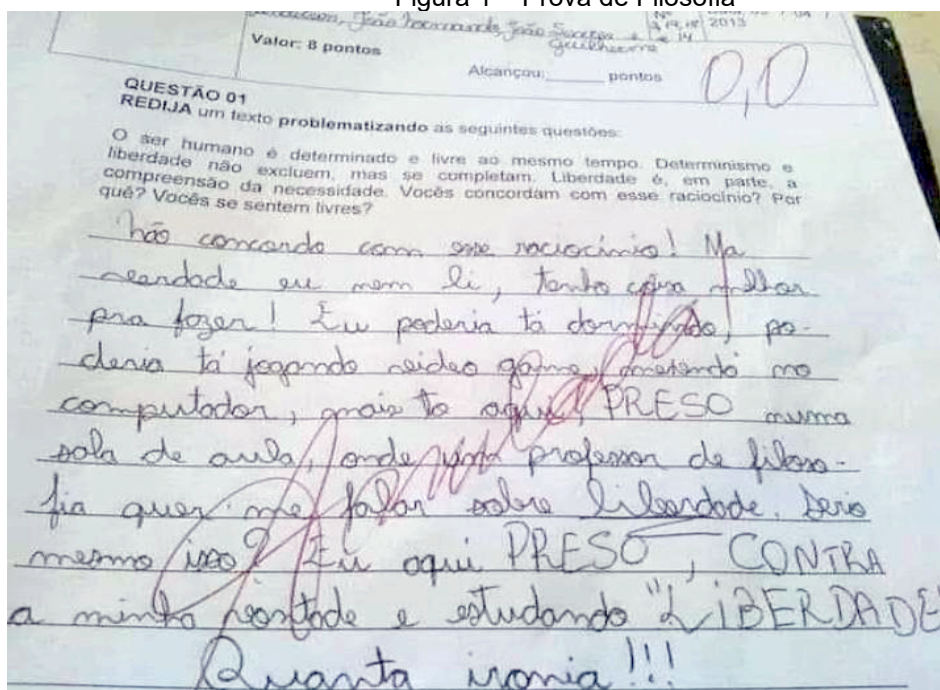 Figura 1 – Prova de Filosofia
João Fernando, João Santos e
Guilherme
Nº
14
2013
Valor: 8 pontos
Alcançou:______ pontos
0,0
QUESTÃO 01
REDIJA um texto problematizando as seguintes questões:
O ser humano é determinado e livre ao mesmo tempo. Determinismo e
liberdade não excluem, mas se completam. Liberdade é, em parte, a
compreensão da necessidade. Vocês concordam com esse raciocínio? Por
quê? Vocês se sentem livres?
não concordo com esse raciocínio! Na
verdade eu nem li, tenho coisa melhor
pra fazer! Eu poderia tá dormindo, po-
deria tá jogando video game, metendo no
computador, mais to aqui, PRESO numa
sala de aula, onde um professor de filoso-
fia quer me falar sobre liberdade. Serio
mesmo isso? Eu aqui PRESO, CONTRA
a minha vontade e estudando "LIBERDADE
Quanta ironia!!!